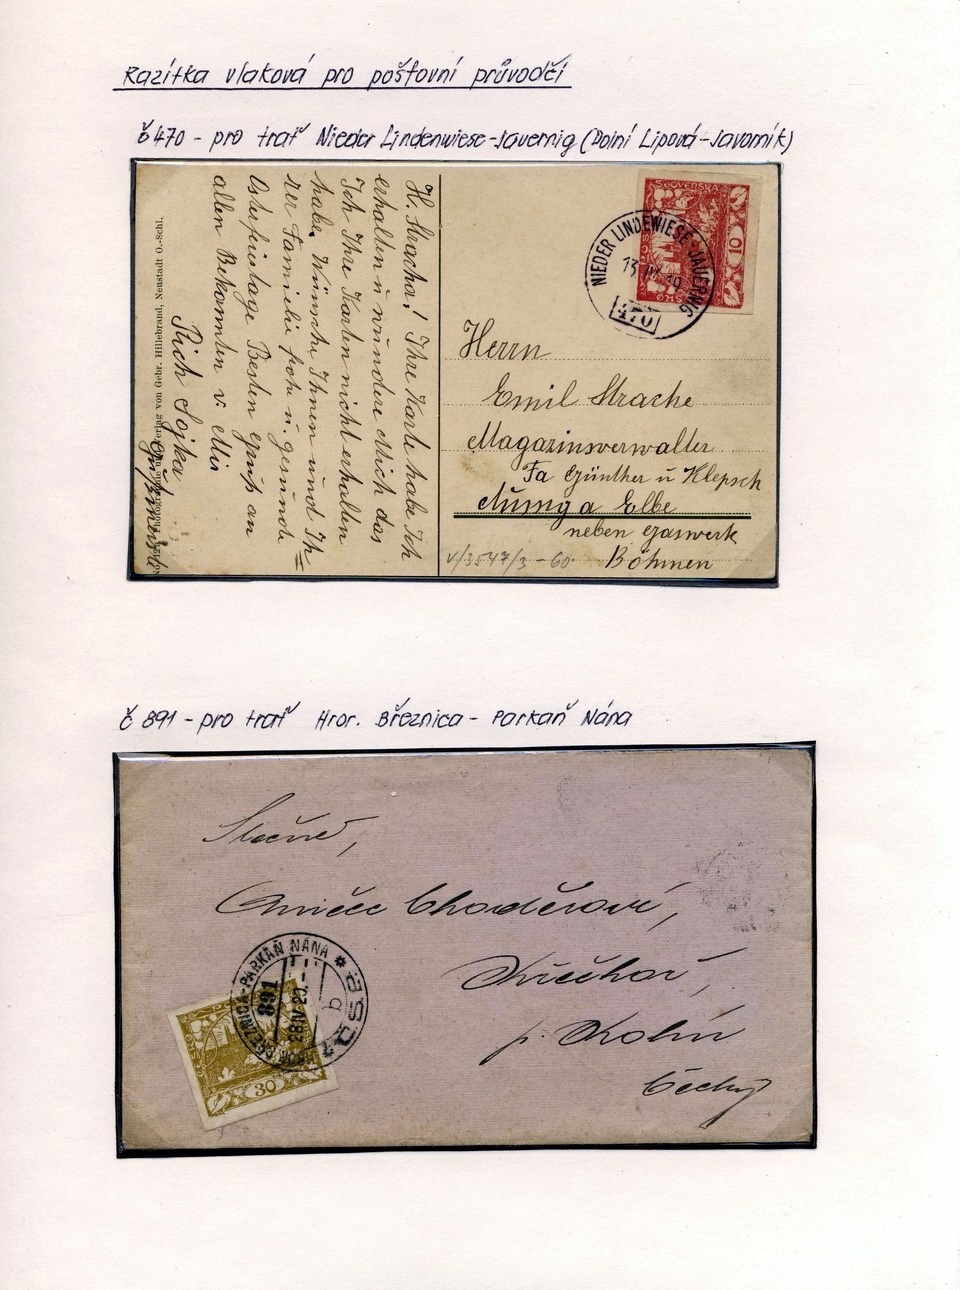 Razítka vlaková pro poštovní průvodčí
č 470 - pro trať Nieder Lindenwiese - Jauernig (Dolní Lipová - Javorník)
H. Strache! Ihre Karte habe Ich
erhalten u wundere Mich das
Ich Ihre Karten nicht erhalten
habe. Wünsche Ihnen und Ih=
rer Familie frohe u. gesunde
Osterfeiertage Besten Gruß an
allen Bekannten v. Mir
Rich Sojka
Verlag von Gebr. Hillebrand, Neustadt O.-Schl.
SLOVENSKA
10
NIEDER LINDEWIESE - JAUERNIG
13 IV 19
470
Herrn
Emil Strache
Magazinsverwalter
Fa Günther u Klepsch
Aussig a Elbe
neben Gaswerk
Böhmen
V/3547/3 - 60
č 891 - pro trať Hror. Březnica - Parkaň Nána
Slečně,
Aničce
Křečhoř,
p. Kolín
Čechy
BŘEZNICA-PARKAŇ NÁNA
891
28 IV 20
b
30